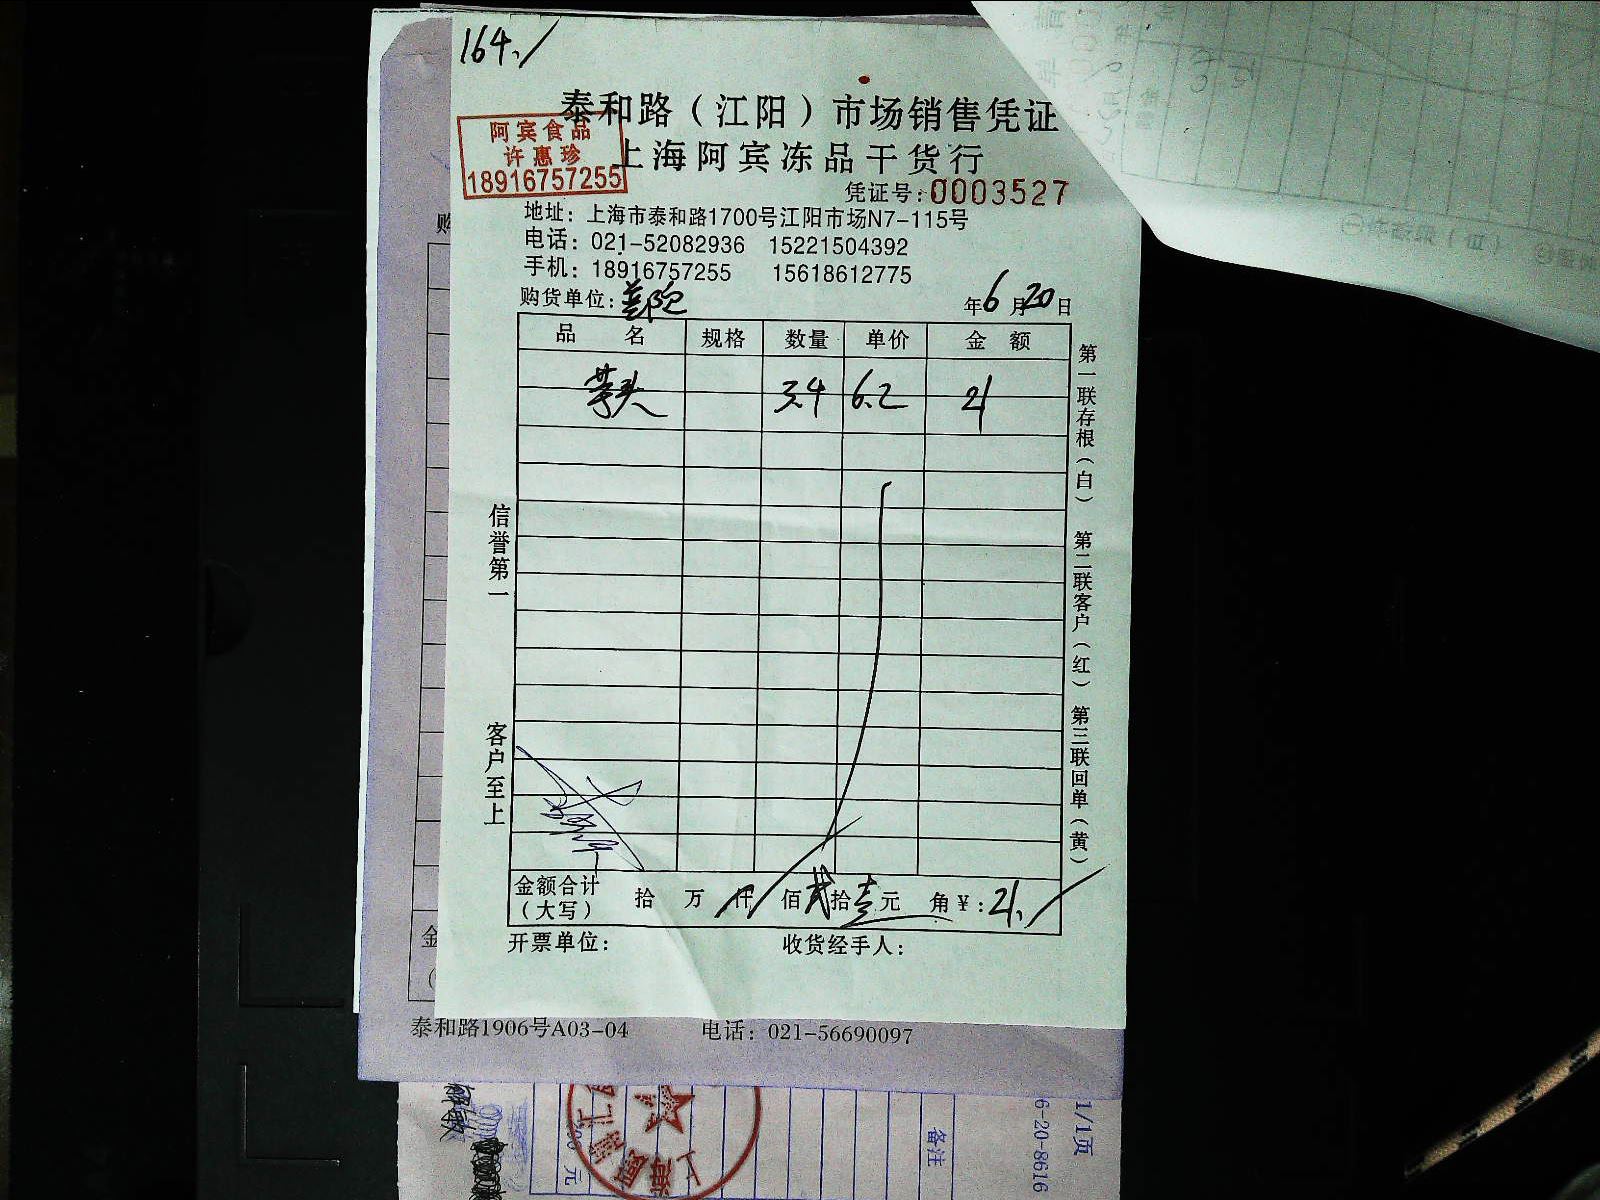 164./
泰和路（江阳）市场销售凭证
阿宾食品
许惠珍
18916757255
上海阿宾冻品干货行
凭证号：0003527
地址：上海市泰和路1700号江阳市场N7-115号
电话：021-52082936 15221504392
手机：18916757255 15618612775
购货单位：
年6月20日
品名 规格 数量 单价 金额
芋头 3.4 6.2 21
第一联存根（白） 第二联客户（红） 第三联回单（黄）
信誉第一
客户至上
金额合计（大写） 拾 万 仟 佰贰拾壹元 角￥：21./
开票单位： 收货经手人：
购
金
泰和路1906号A03-04 电话：021-56690097
1/1页
6-20-8616
备注
元
上海